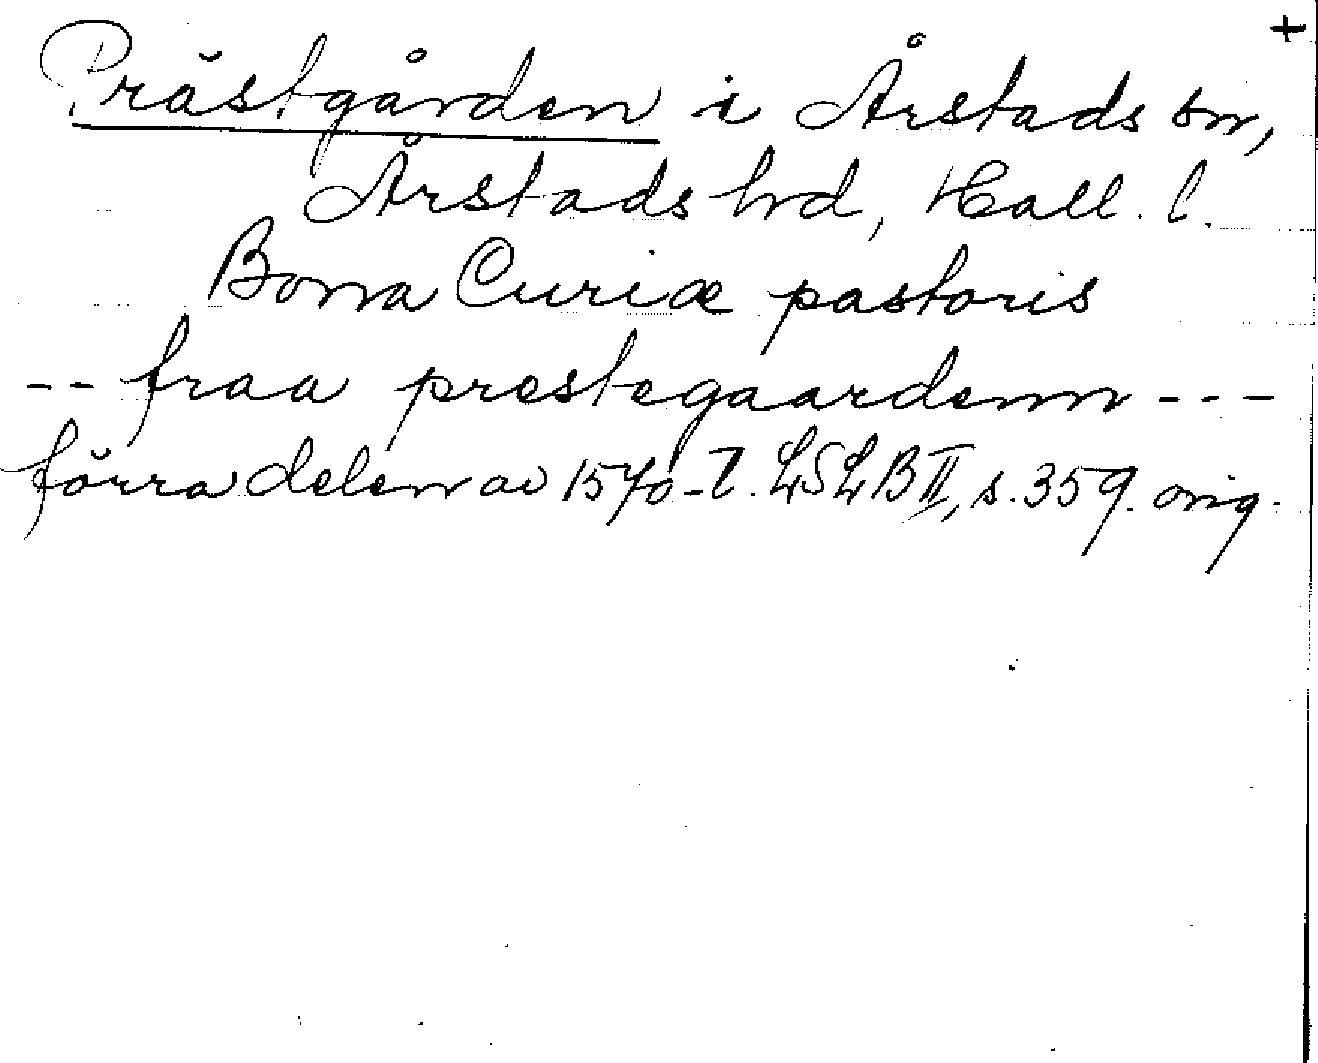 +
Prästgården i Årstads sn,
Årstads hrd, Hall. l.
Bona Curiæ pastoris
-- fraa prestegaardenn ---
förra delen av 1570-t. LSLB II, s. 359. orig.